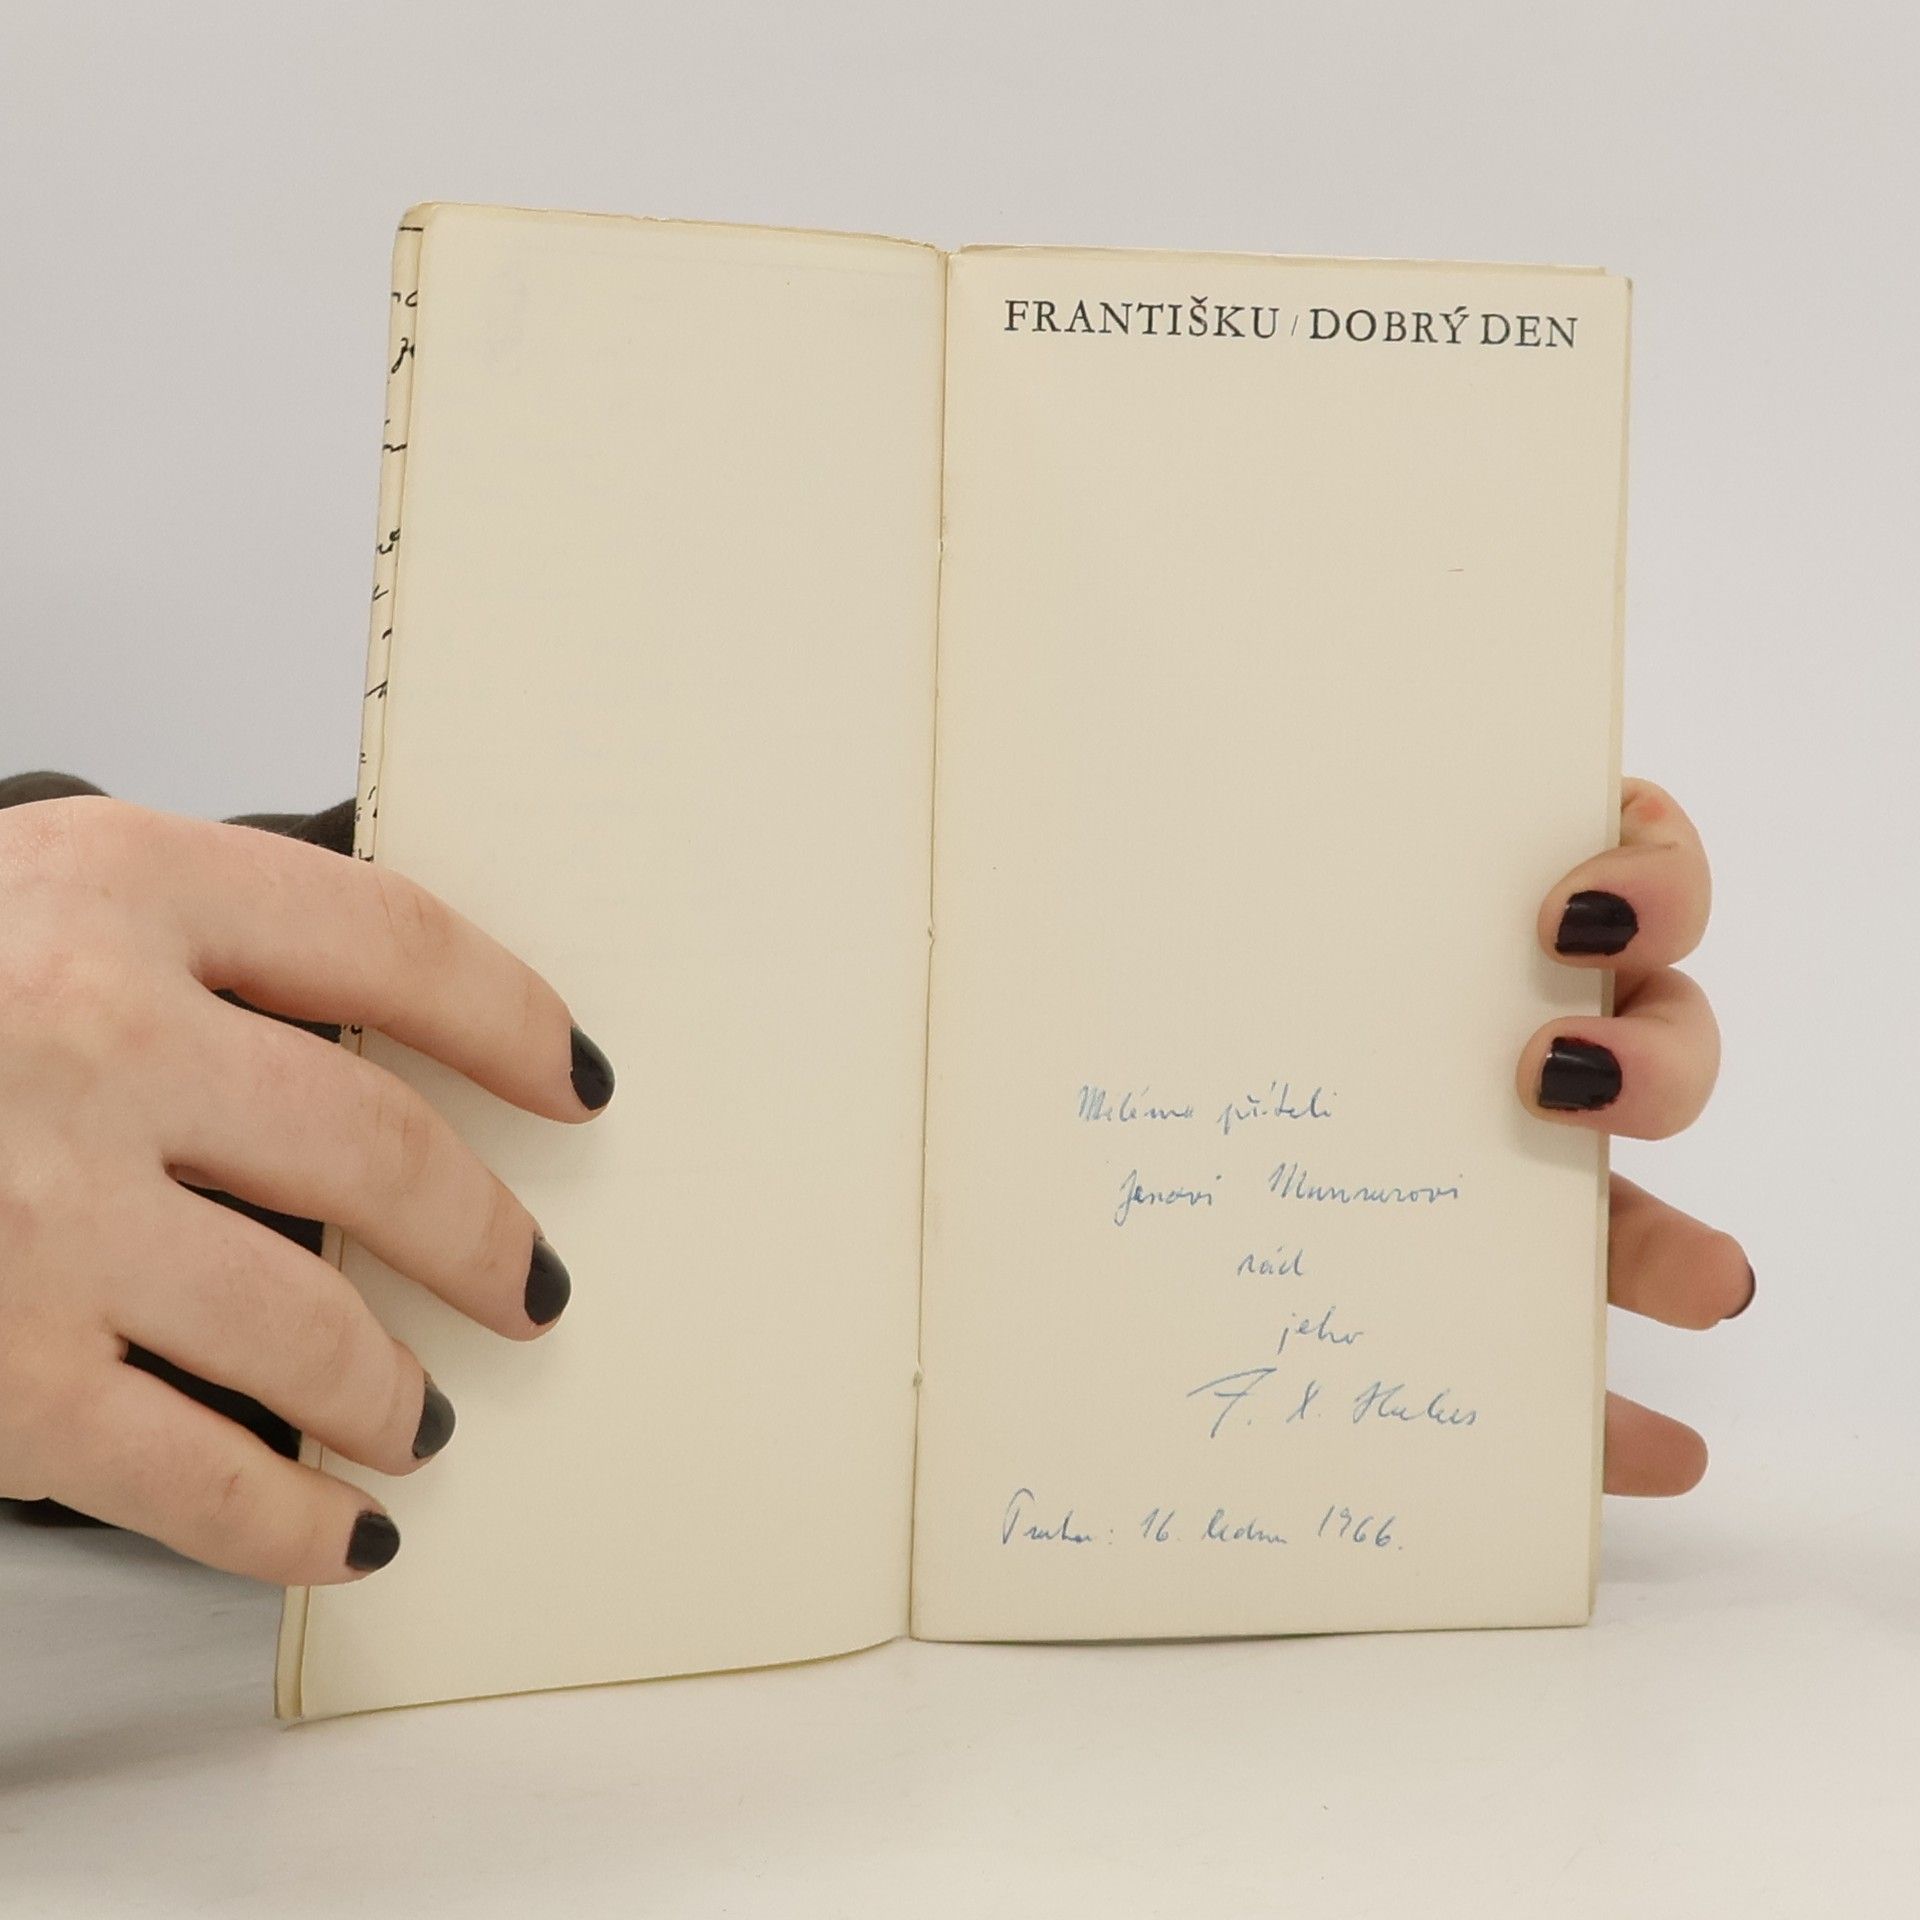 FRANTIŠKU / DOBRÝ DEN
Milému příteli
Janovi
rád
jeho
F. X. Halas
Praha: 16. ledna 1966.